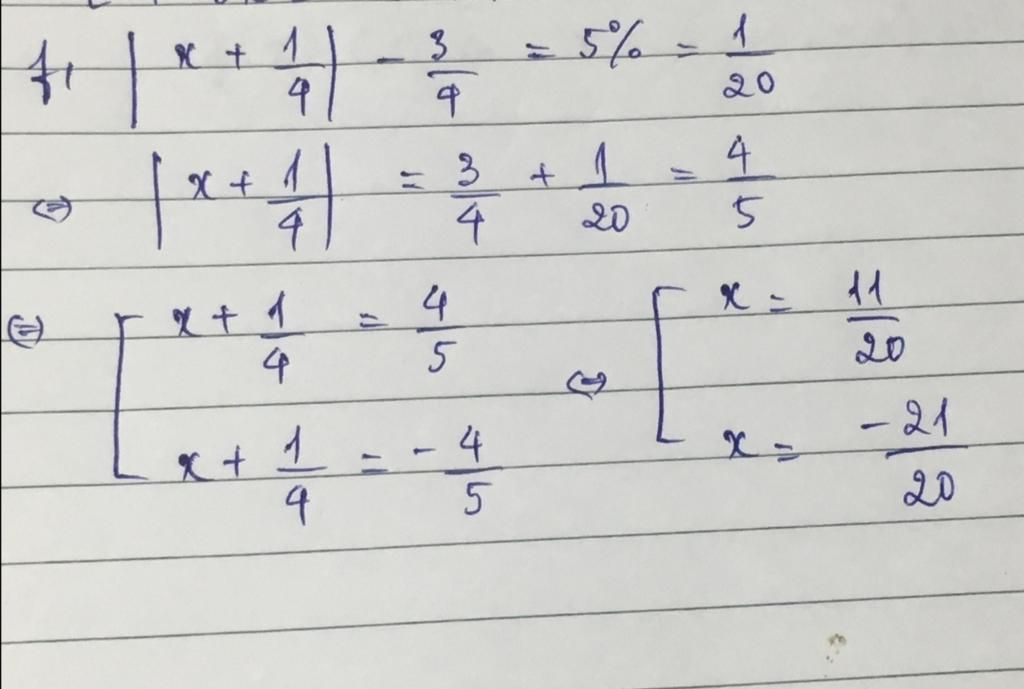 f, | x + 1/4 | - 3/4 = 5% = 1/20
⇔ | x + 1/4 | = 3/4 + 1/20 = 4/5
⇔ [ x + 1/4 = 4/5 ⇔ [ x = 11/20
x + 1/4 = - 4/5 x = -21/20